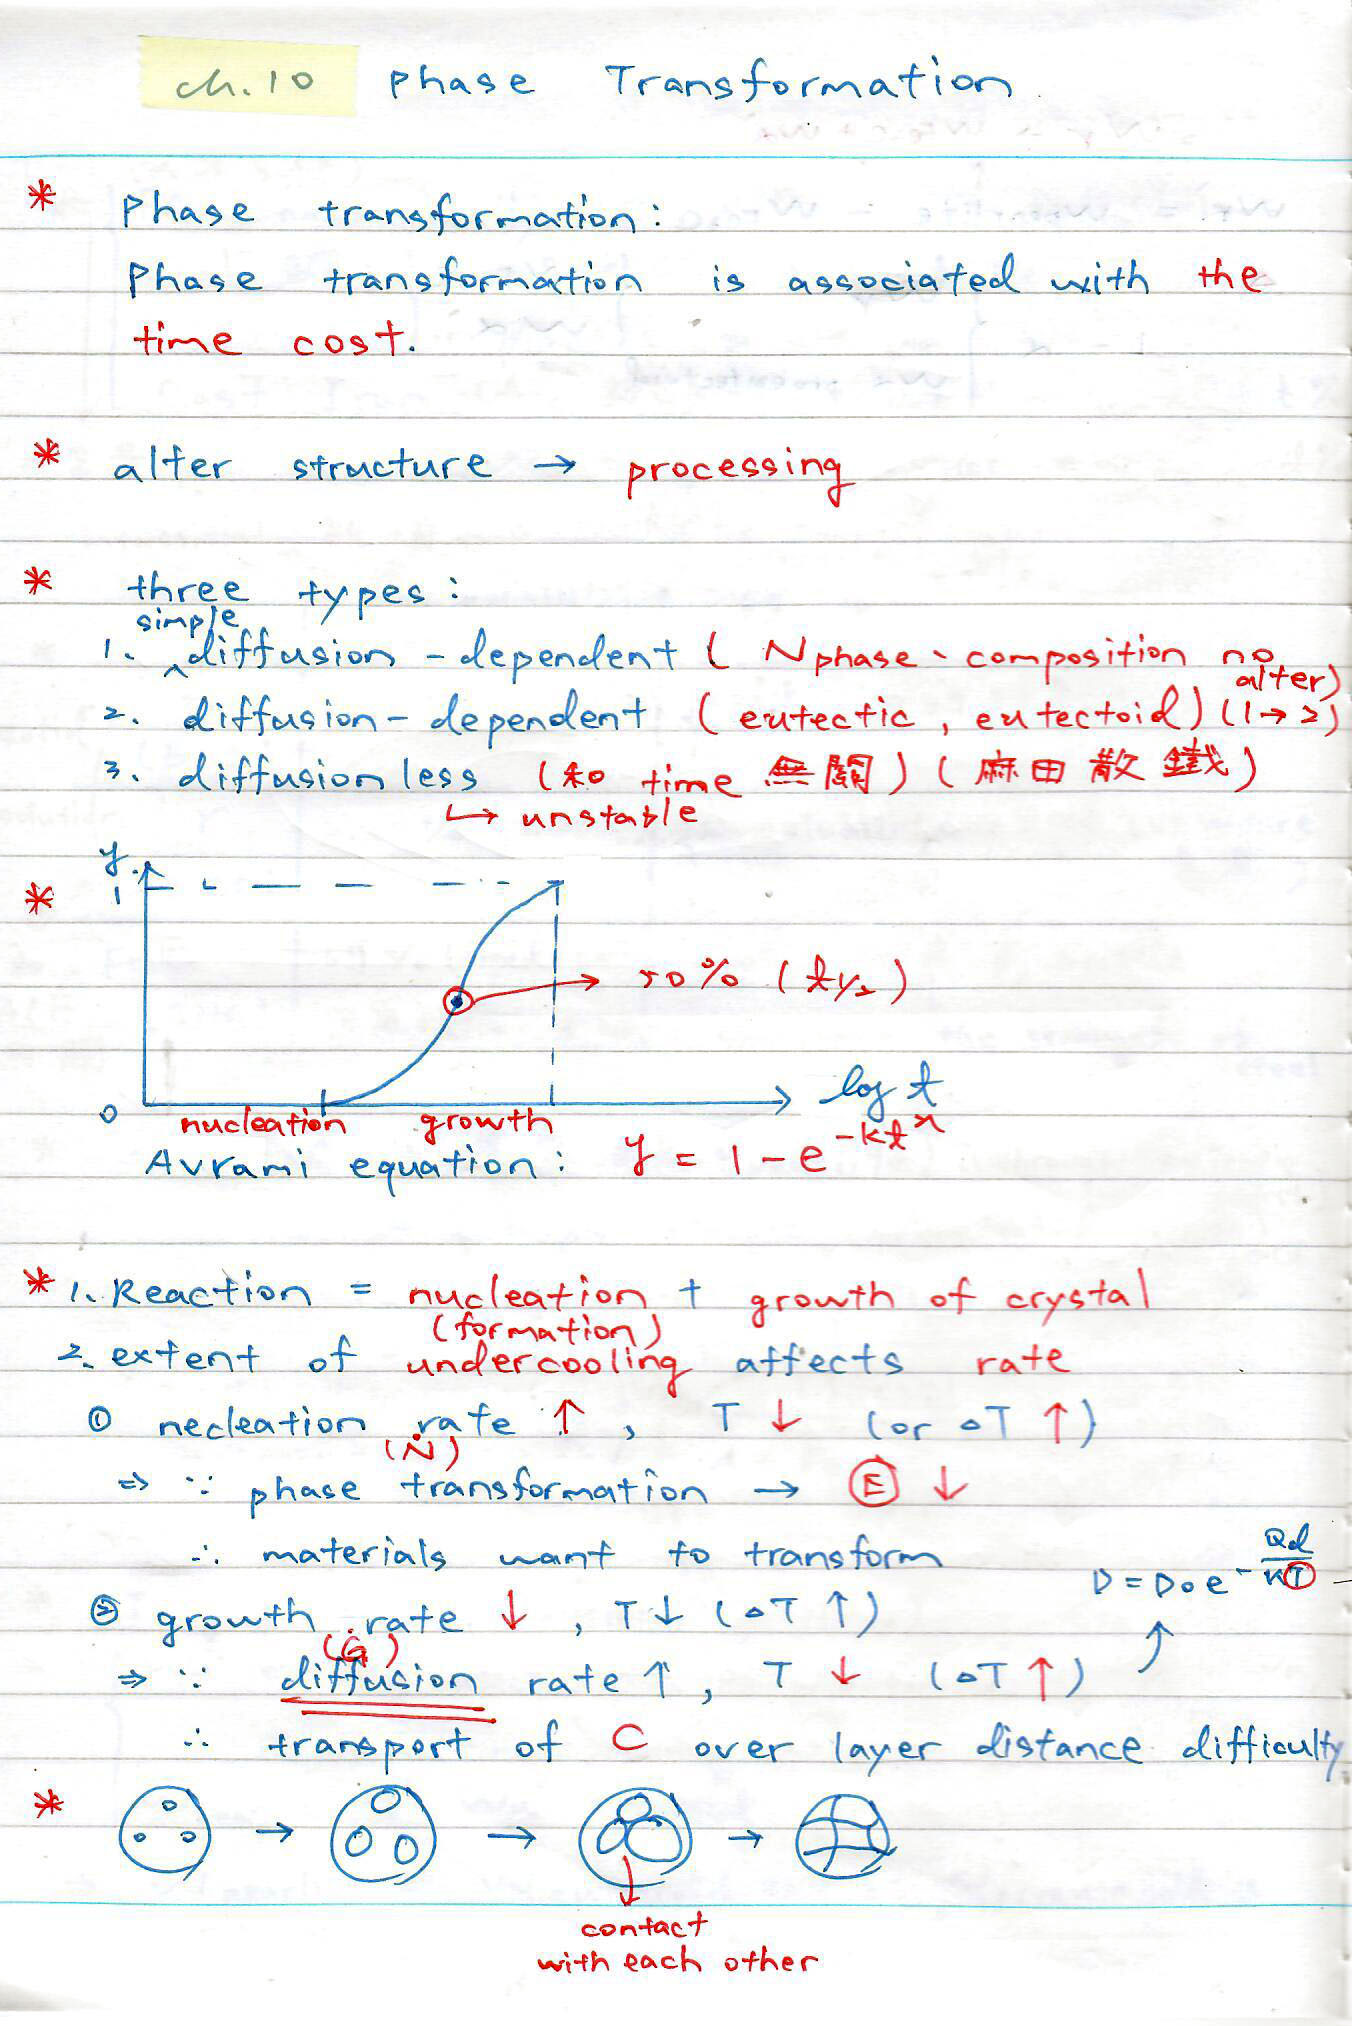 ch.10 Phase Transformation
* Phase transformation:
Phase transformation is associated with the
time cost.
* alter structure → processing
* three types:
simple
1. ^diffusion-dependent ( Nphase、composition no
alter)
2. diffusion-dependent (eutectic, eutectoid) (1→2)
3. diffusionless (和 time 無關) (麻田散鐵)
↳ unstable
y
*
1
50% (t1/2)
0
log t
nucleation growth
Avrami equation: y = 1-e^-kt^n
* 1. Reaction = nucleation + growth of crystal
(formation)
2. extent of undercooling affects rate
① necleation rate ↑, T ↓ (or △T ↑)
(Ṅ)
⇒ ∵ phase transformation → Ⓔ ↓
∴ materials want to transform
D = D0 e^-Qd/KT
② growth rate ↓, T↓ (△T ↑)
(Ġ)
⇒ ∵ diffusion rate ↑, T ↓ (△T ↑)
∴ transport of C over layer distance difficulty
*
→ → →
contact
with each other